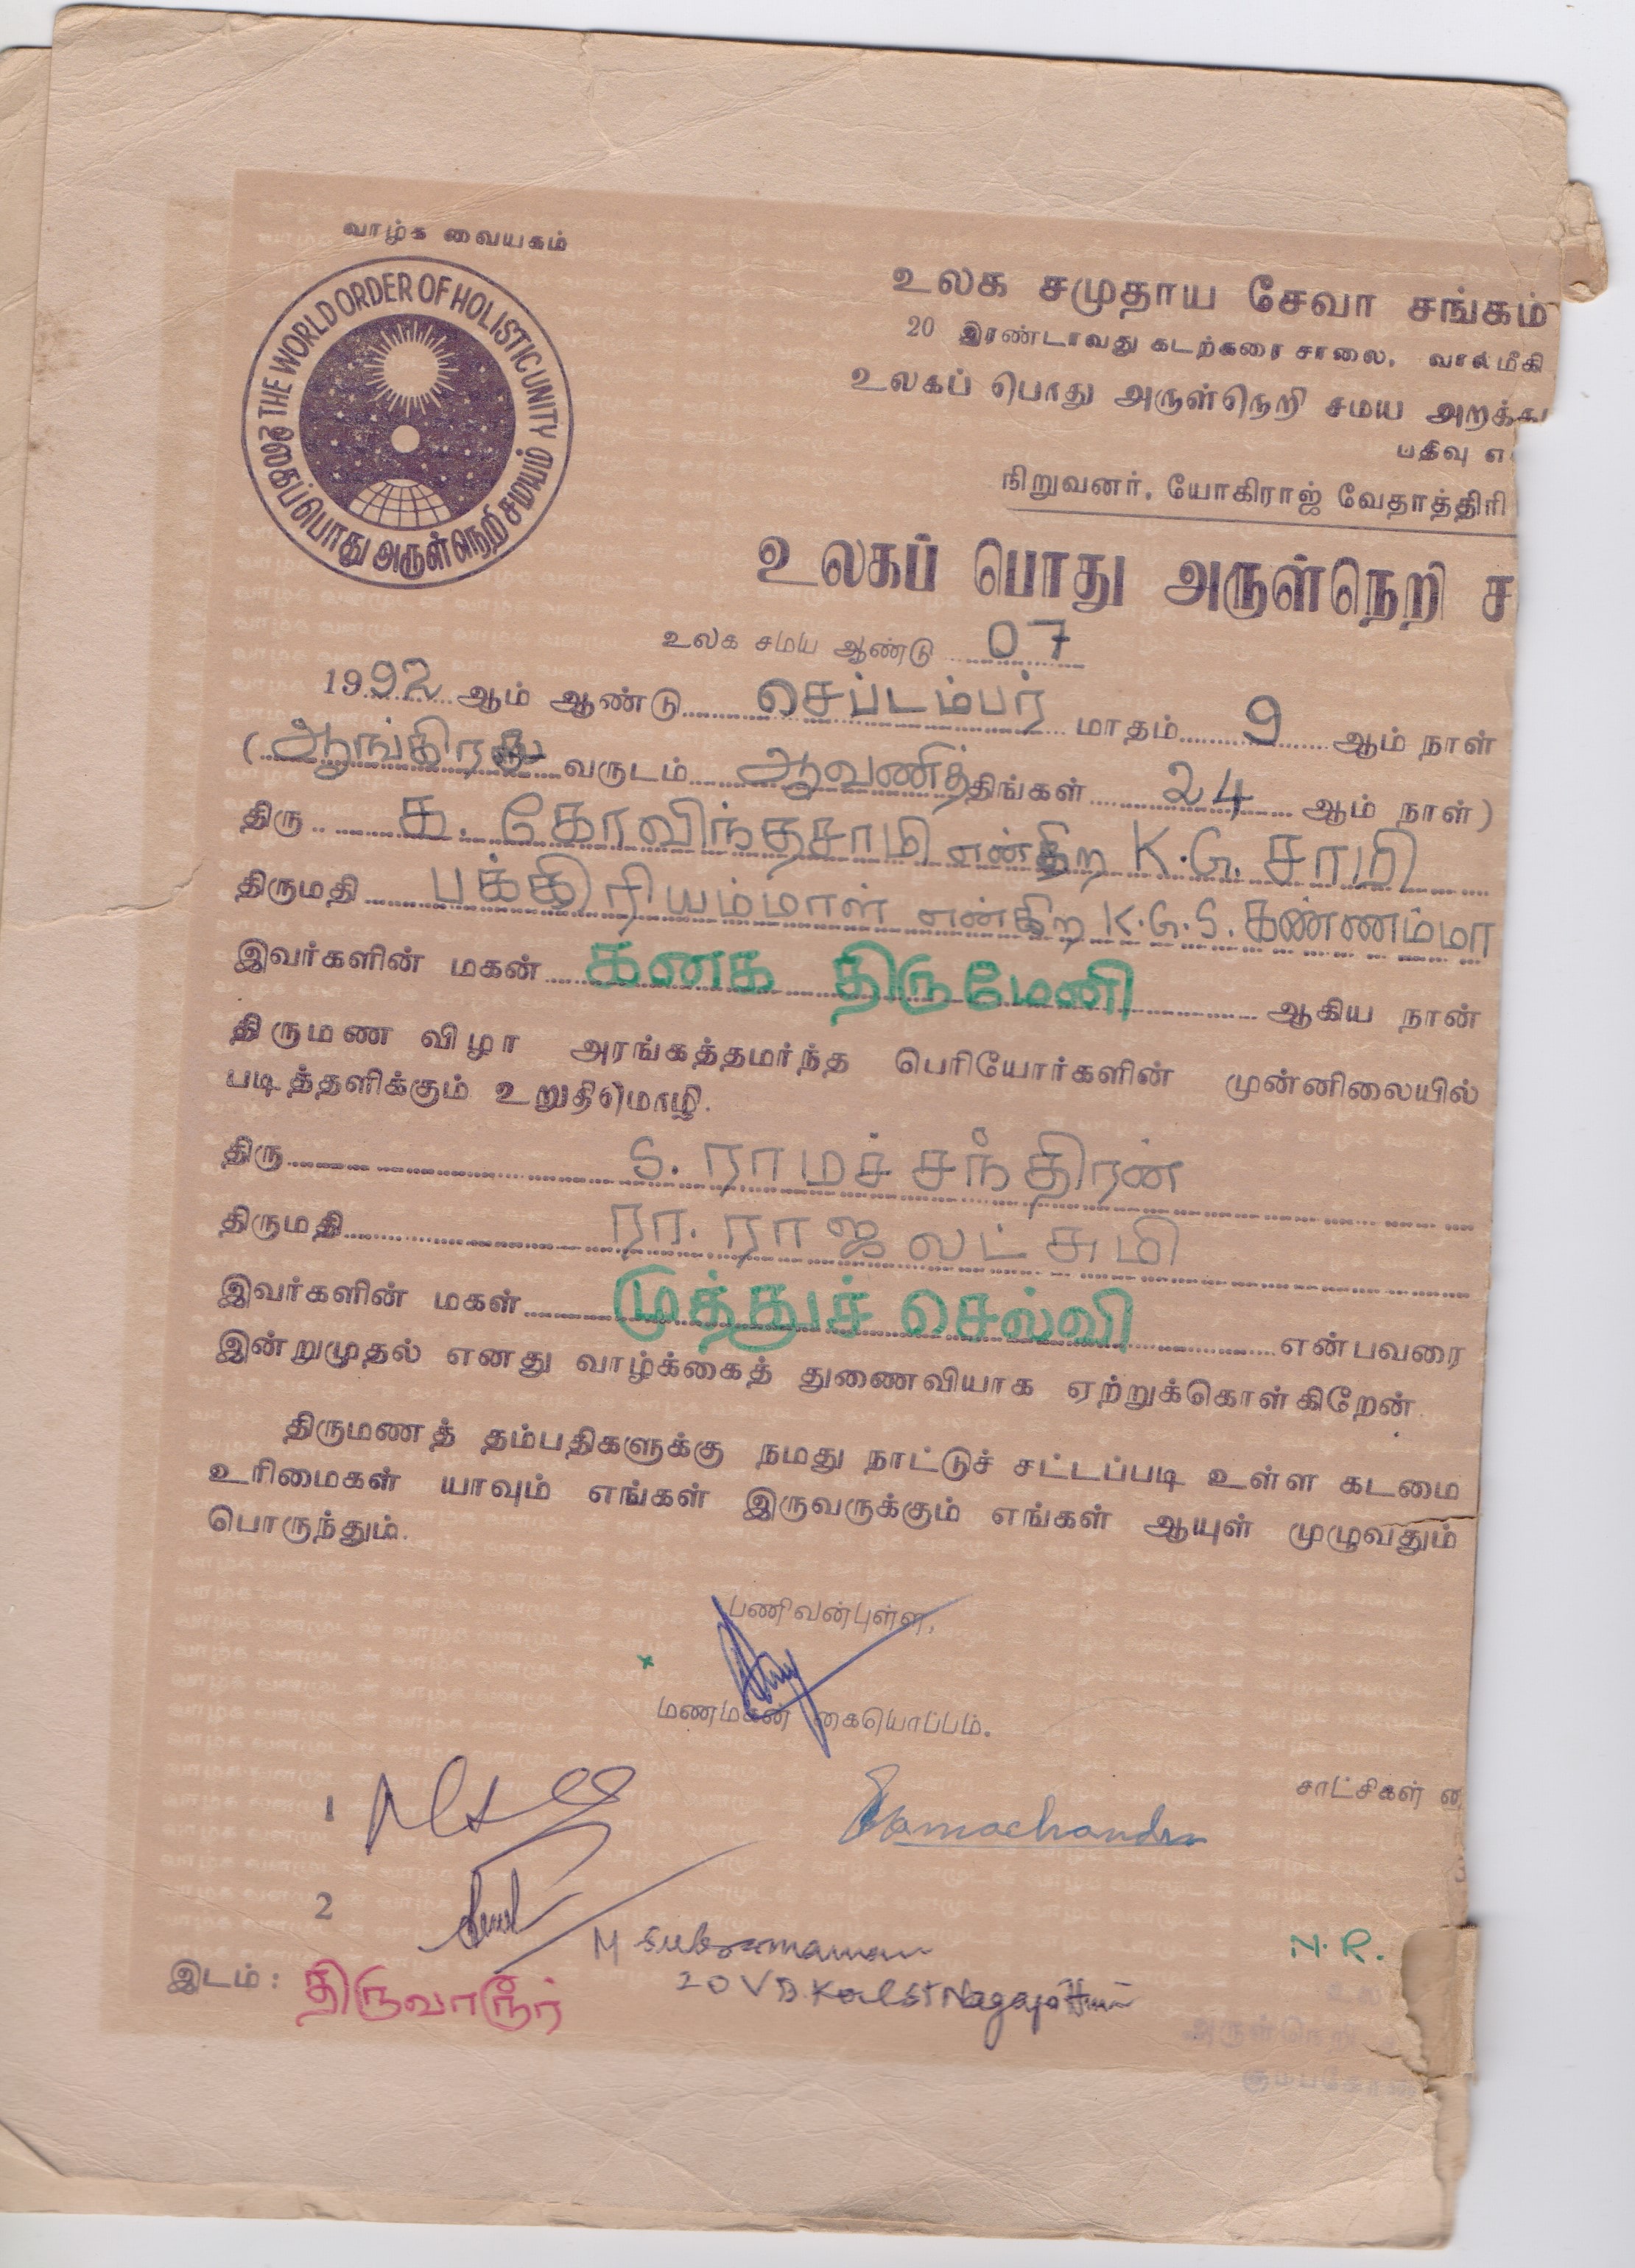 வாழ்க வையகம்
THE WORLD ORDER OF HOLISTIC UNITY
உலகப்பொது அருள்நெறி சமயம்
உலக சமுதாய சேவா சங்கம்
20 இரண்டாவது கடற்கரை சாலை, வால்மீகி
உலகப் பொது அருள்நெறி சமய அறக்
பதிவு
நிறுவனர், யோகிராஜ் வேதாத்திரி
உலகப் பொது அருள்நெறி ச
உலக சமய ஆண்டு 07
1992 ஆம் ஆண்டு செப்டம்பர் மாதம் 9 ஆம் நாள்
( வருடம் ஆவணித் திங்கள் 24 ஆம் நாள்)
திரு க. கோவிந்தசாமி என்கிற K.G. சாமி
திருமதி பக்கிரியம்மாள் என்கிற K.G.S. கண்ணம்மா
இவர்களின் மகன் கனக திருமேனி ஆகிய நான்
திருமண விழா அரங்கத்தமர்ந்த பெரியோர்களின் முன்னிலையில்
படித்தளிக்கும் உறுதிமொழி.
திரு S. ராமச்சந்திரன்
திருமதி ரா. ராஜலட்சுமி
இவர்களின் மகள் முத்துச் செல்வி என்பவரை
இன்றுமுதல் எனது வாழ்க்கைத் துணைவியாக ஏற்றுக்கொள்கிறேன்.
திருமணத் தம்பதிகளுக்கு நமது நாட்டுச் சட்டப்படி உள்ள கடமை
உரிமைகள் யாவும் எங்கள் இருவருக்கும் எங்கள் ஆயுள் முழுவதும்
பொருந்தும்.
பணிவன்புள்ள,
மணமகன் கையொப்பம்.
சாட்சிகள்
1
Ramachandra
2
M Subramanian
20 V.D. Koil St Nagapattinam
N.R.
இடம்: திருவாரூர்
அருள்நெறி
கும்பகோண